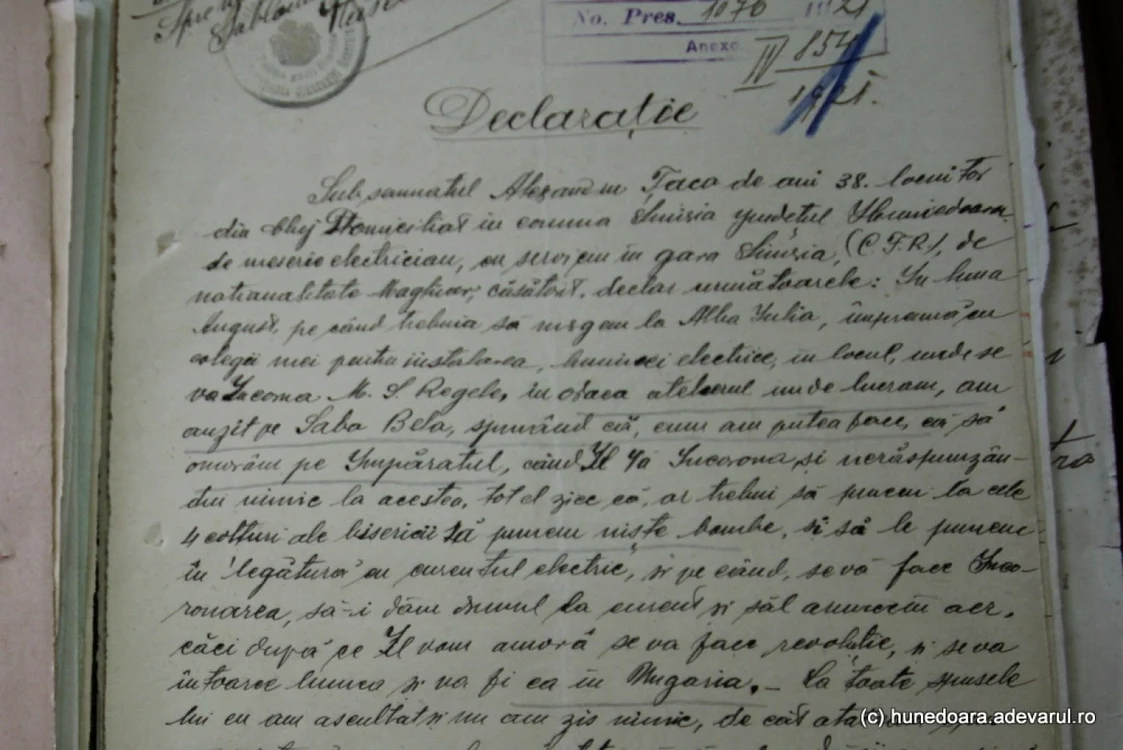 Spre
No. Pres. 1076 1921
Anexe
IV 854
1921.
Declarație
Subsemnatul Alexandru Taca de ani 38. locuitor
din Cluj Domiciliat în comuna Simeria județul Hunedoara
de meserie electrician, cu serviciu în gara Simeria, (C.F.R.), de
naționalitate Maghiar, căsătorit, declar următoarele: În luna
August, pe când trebuia să mergem la Alba Iulia, împreună cu
colegii mei pentru instalarea, luminei electrice, în locul, unde se
va Incorona M. S. Regele, în odaea atelierul unde lucram, am
auzit pe Sabo Bela, spunând că, cum am putea face, ca să
omorâm pe Împăratul, când Îl va Incorona, și nerăspunzân-
du nimic la acestea, tot el zice că, ar trebui să punem la cele
4 colțuri ale bisericii să punem niște bombe, și să le punem
în legătură cu curentul electric, și pe când, se vă face Inco-
ronarea, să-i dăm drumul la curent și săl aruncăm în aer,
căci după ce Îl vom amoră se va face revoluție, și se va
întoarce lumea și va fi ca în Ungaria. - La toate spusele
lui eu am ascultat și nu am zis nimic, de cât
(c) hunedoara.adevarul.ro